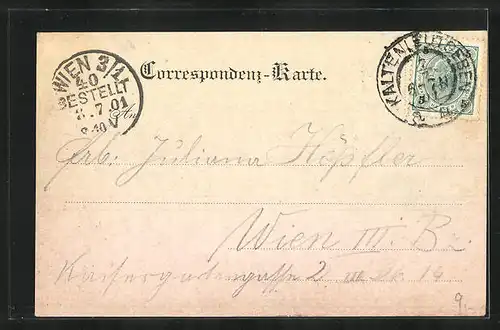 WIEN 3/1
40
BESTELLT
8.7.01
8.40 V
KALTENLEUTGEBEN
Correspondenz-Karte.
An
Frl. Juliana Höpfler
Wien III. Bz.
2 14
9.